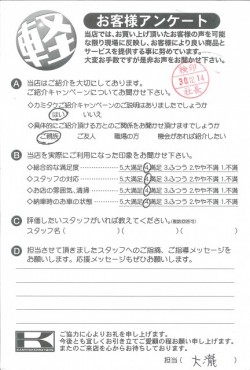 軽
お客様アンケート
当店では、お買い上げ頂いたお客様の声を可能
な限り現場に反映し、お客様により良い商品と
サービスを提供する事に努めています。
大変お手数ですが是非お声をお聞かせ下さい。
A 当店はご紹介を大切にしております。
ご紹介キャンペーンについてお聞かせ下さい。
◇カミタケご紹介キャンペーンのご説明はありましたでしょうか
はい いいえ
◇具体的にご紹介頂ける方とのご関係をお聞かせ下さい
ご親族 ご友人 職場の方 機会があれば紹介したい
B 当店を実際にご利用になった印象をお聞かせ下さい。
◇総合的な満足度 5.大満足 4.満足 3.ふつう 2.やや不満 1.不満
◇スタッフの対応 5.大満足 4.満足 3.ふつう 2.やや不満 1.不満
◇お店の雰囲気、清掃 5.大満足 4.満足 3.ふつう 2.やや不満 1.不満
◇納車時のお車の状態 5.大満足 4.満足 3.ふつう 2.やや不満 1.不満
C 評価したいスタッフがいれば教えてください。
スタッフ名( )( )
D 担当させて頂きましたスタッフへのご指摘、ご指導メッセージを
お願いします。応援メッセージもぜひお願いします。
K
ご協力に心よりお礼を申し上げます。
今後とも宜しくお引き立てご愛顧の程お願い申し上げます。
またのご来店を心からお待ちしております。
担当( 大瀧 )